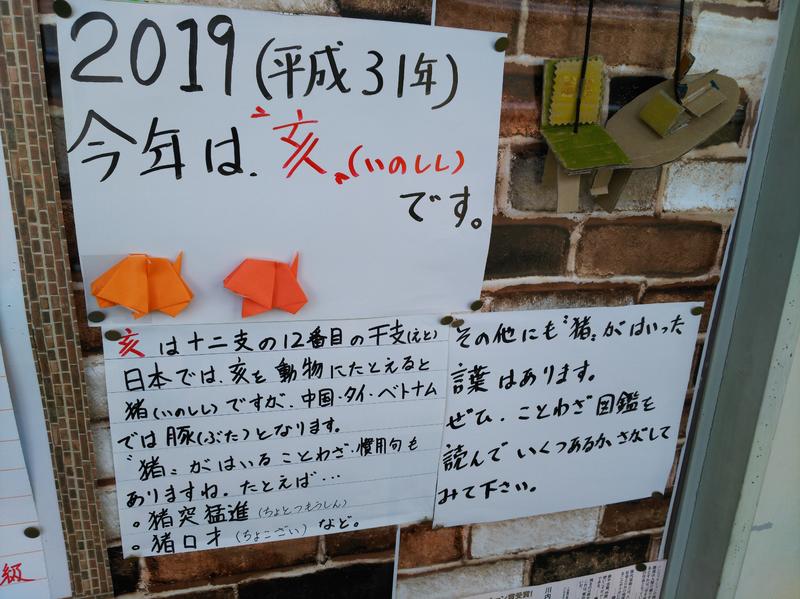 2019(平成31年)
今年は、〝亥〟(いのしし)
です。
亥は十二支の12番目の干支(えと)
日本では、亥を動物にたとえると
猪(いのしし)ですが、中国・タイ・ベトナム
では豚(ぶた)となります。
〝猪〟がはいることわざ・慣用句も
ありますね。たとえば…
。猪突猛進(ちょとつもうしん)
。猪口才(ちょこざい)など。
その他にも〝猪〟がはいった
言葉はあります。
ぜひ、ことわざ図鑑を
読んでいくつあるかさがして
みて下さい。
級
川内